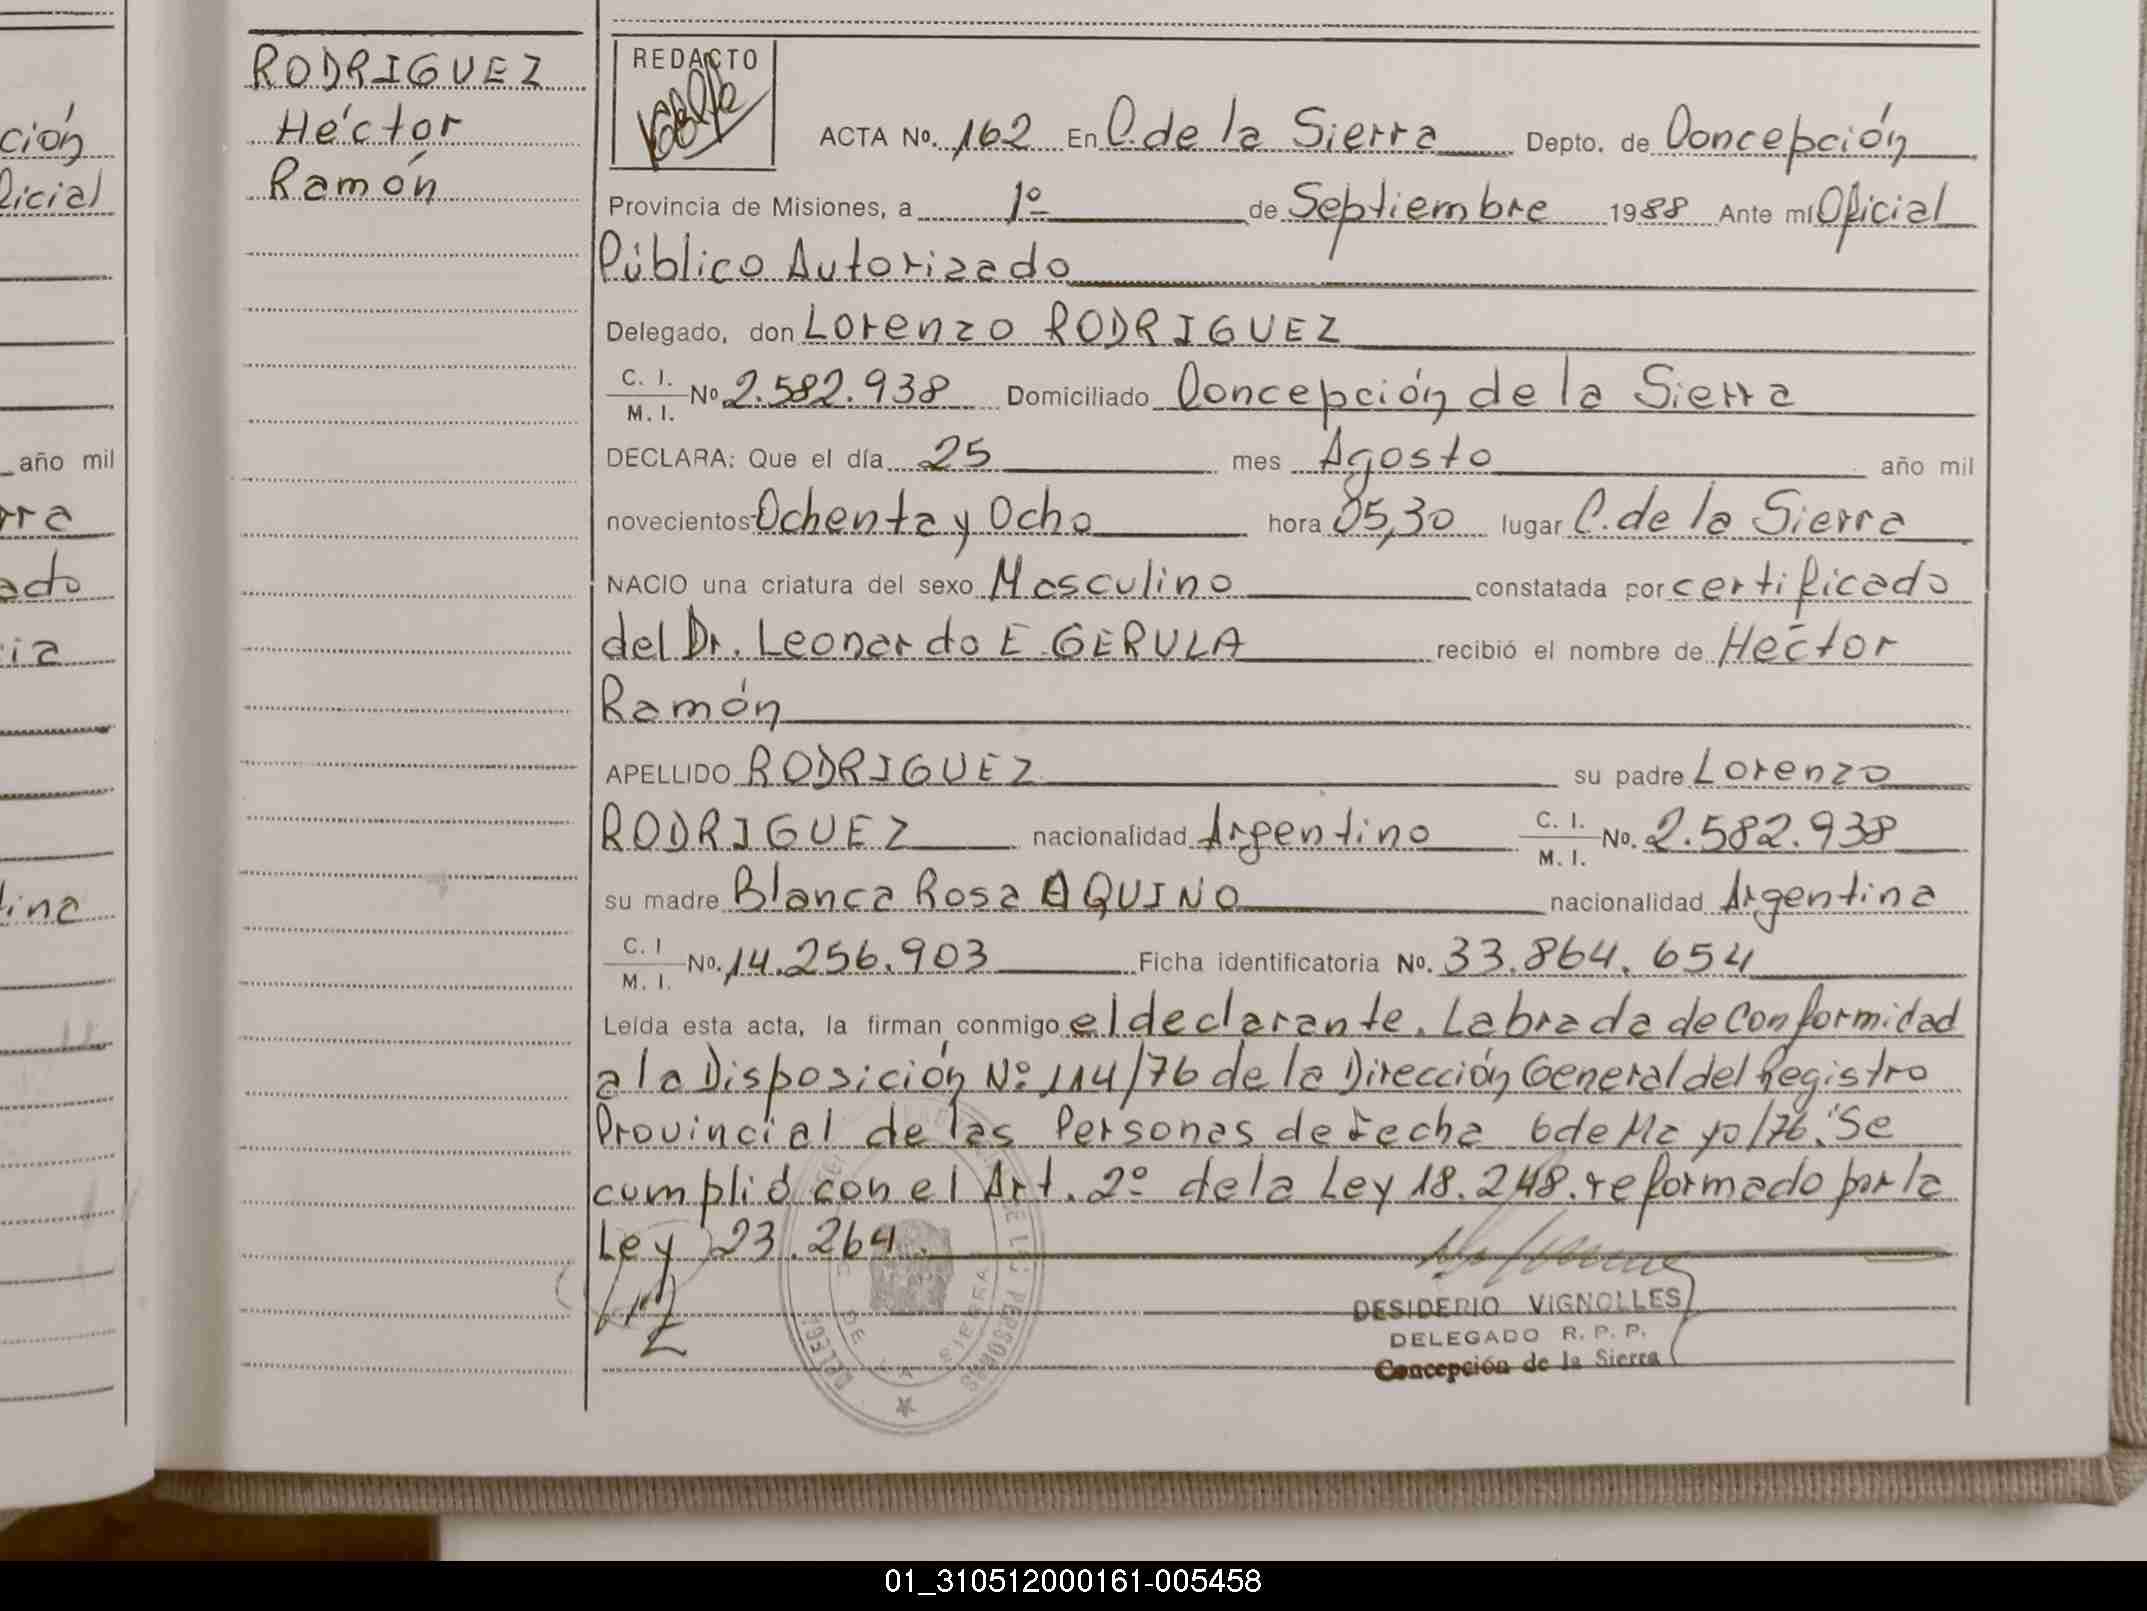 RODRIGUEZ
Héctor
Ramón
REDACTO
ACTA No. 162 En C. de la Sierra Depto. de Concepción
Provincia de Misiones, a 1º de Septiembre 1988 Ante mí Oficial
Público Autorizado
Delegado, don Lorenzo RODRIGUEZ
C. I. M. I. No 2.582.938 Domiciliado Concepción de la Sierra
DECLARA: Que el día 25 mes Agosto año mil
novecientos Ochenta y Ocho hora 05,30 lugar C. de la Sierra
NACIO una criatura del sexo Masculino constatada por certificado
del Dr. Leonardo E. GERULA recibió el nombre de Héctor
Ramón
APELLIDO RODRIGUEZ su padre Lorenzo
RODRIGUEZ nacionalidad Argentino C. I. M. I. No. 2.582.938
su madre Blanca Rosa AQUINO nacionalidad Argentina
C. I M. I. No. 14.256.903 Ficha identificatoria No. 33.864.654
Leída esta acta, la firman conmigo el declarante. Labrada de Conformidad
a la Disposición Nº 114/76 de la Dirección General del Registro
Provincial de las Personas de Fecha 6 de Mayo/76. Se
cumplió con el Art. 2º de la Ley 18.248. reformado por la
Ley 23.264.
DESIDERIO VIGNOLLES
DELEGADO R. P. P.
Concepción de la Sierra
ción
ficial
año mil
rra
ado
ia
ina
DE LA SIERRA
01_310512000161-005458